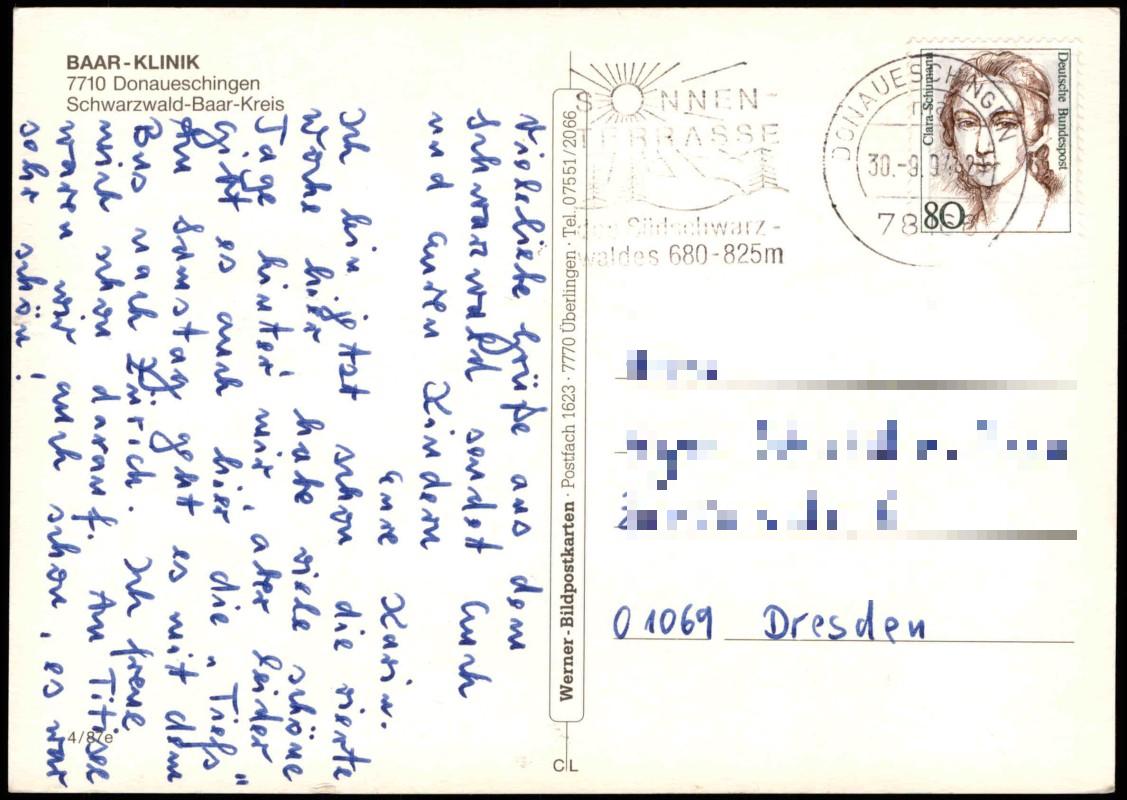 BAAR-KLINIK
7710 Donaueschingen
Schwarzwald-Baar-Kreis
Viele liebe Grüße aus dem
Schwarzwald sendet Euch
und Euren Kindern
Eure Karin.
Ich bin jetzt schon die vierte
Woche hier, habe viele schöne
Tage hinter mir, aber leider
gibt es auch hier die „Tiefs"
Am Samstag geht es mit dem
Bus nach Zürich. Ich freue
mich schon darauf. Am Titisee
waren wir auch schon, es war
sehr schön!
4/87e
Werner-Bildpostkarten · Postfach 1623 · 7770 Überlingen · Tel. 07551/2066
CL
SONNEN-
TERRASSE
des Südschwarz-
waldes 680-825m
DONAUESCHINGEN
Clara Schumann
Deutsche Bundespost
80
01069 Dresden